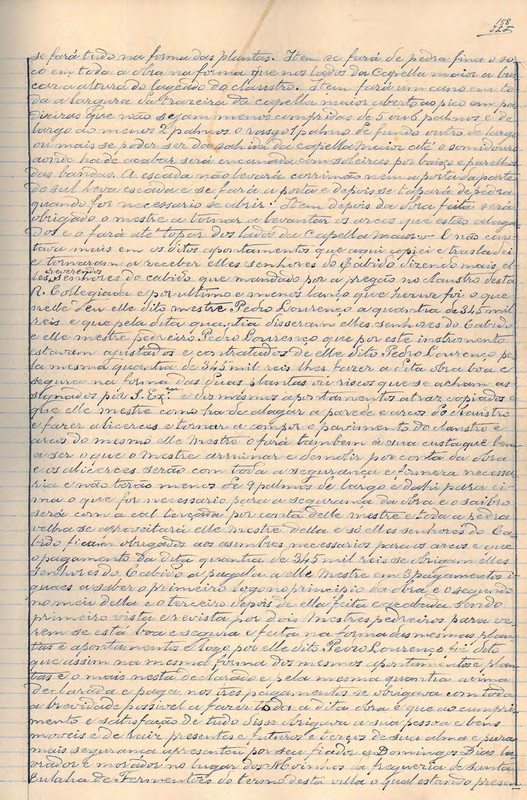 158
se fará tudo na forma das plantas. Item se fará de pedra fina o so
co em toda a obra na forma que nos lados da Capella maior a bus
car a altura do lageado do claustro. Item fará um cano em to
da a largura da trazeira da capella maior aberto ao pico em pa
dieiras que não sejam menos compridas de 5 ou 6 palmos e de
largo ao menos 2 palmos o rasgo 1 palmo de fundo outro de largo
ou mais se poder ser do sahir da capella maior até o sumidouro
aonde ha de acabar será encanada com soleiras por baixo e parelho
das bandas. A escada não levará corrimão nem a porta da parte
do sul leva escada e se fará a porta e depois se tapará de pedra
quando for necessario se abrir. Item depois da obra feita será
obrigado o mestre a tornar a levantar os arcos que estão alaga
dos e o fará até topar dos lados da Capella maior. E não cons
tava mais em os ditos apontamentos que aqui copiei e trasladei
e tornaram a receber elles senhores do Cabido dizendo mais el
les reverendos senhores do cabido que mandado por a pregão no claustro desta
R. Collegiada e por ultimo e menos lanço que houve foi o que
nelle deu elle dito mestre Pedro Lourenço a quantia de 345 mil
reis e que pela dita quantia disseram elles senhores do Cabido
e elle mestre pedreiro Pedro Lourenço que por este instrumento
estavam ajustados e contratados de elle dito Pedro Lourenço pe
la mesma quantia de 345 mil reis lhes fazer a dita obra boa e
segura na forma das duas plantas ou riscos que se acham as
signados por S. Exª e dos mesmos apontamentos atraz copiados e
que elle mestre como ha de alagar a parede e arcos do claustro
e fazer alicerces e tornar a compor o pavimento do claustro e
arcos do mesmo elle mestre o fará tambem á sua custa que vem
a ser o que o mestre arruinar e demolir por conta da obra
e os alicerces serão com toda a segurança e firmeza necessa
ria e não terão menos de 9 palmos de largo e dahi para ci
ma o que for necessario para a segurança da obra e o saibro
será com a cal lançada por conta delle mestre e toda a pedra
velha se aproveitará elle mestre della e só elles senhores do Ca
bido ficam obrigados aos asimbres necessarios para os arcos e que
o pagamento da dita quantia de 345 mil reis se obrigam elles
senhores do Cabido a pagal-a a elle Mestre em 3 pagamentos i
guaes a saber o primeiro logo no principio da obra e o segundo
no meio della e o terceiro depois de ella feita e acabada sendo
primeiro vista e revista por dois Mestres pedreiros para ve
rem se está boa e segura e feita na forma das mesmas plan
tas e apontamentos. E logo por elle dito Pedro Lourenço foi dito
que assim na mesma forma dos mesmos apontamentos e plan
tas e o mais nesta declarado e pela mesma quantia acima
declarada e paga nos tres pagamentos se obrigava com toda
a brevidade possivel a fazer toda a dita obra e que ao cumpri
mento e satisfação de tudo disse obrigava a sua pessoa e bens
moveis e de raiz presentes e futuros e terços de sua alma e para
mais segurança apresentou por seu fiador a Domingos Dias la
vrador e morador no lugar dos Moinhos da freguezia de Santa
Eulalia de Fermentões do termo desta villa o qual estando presen